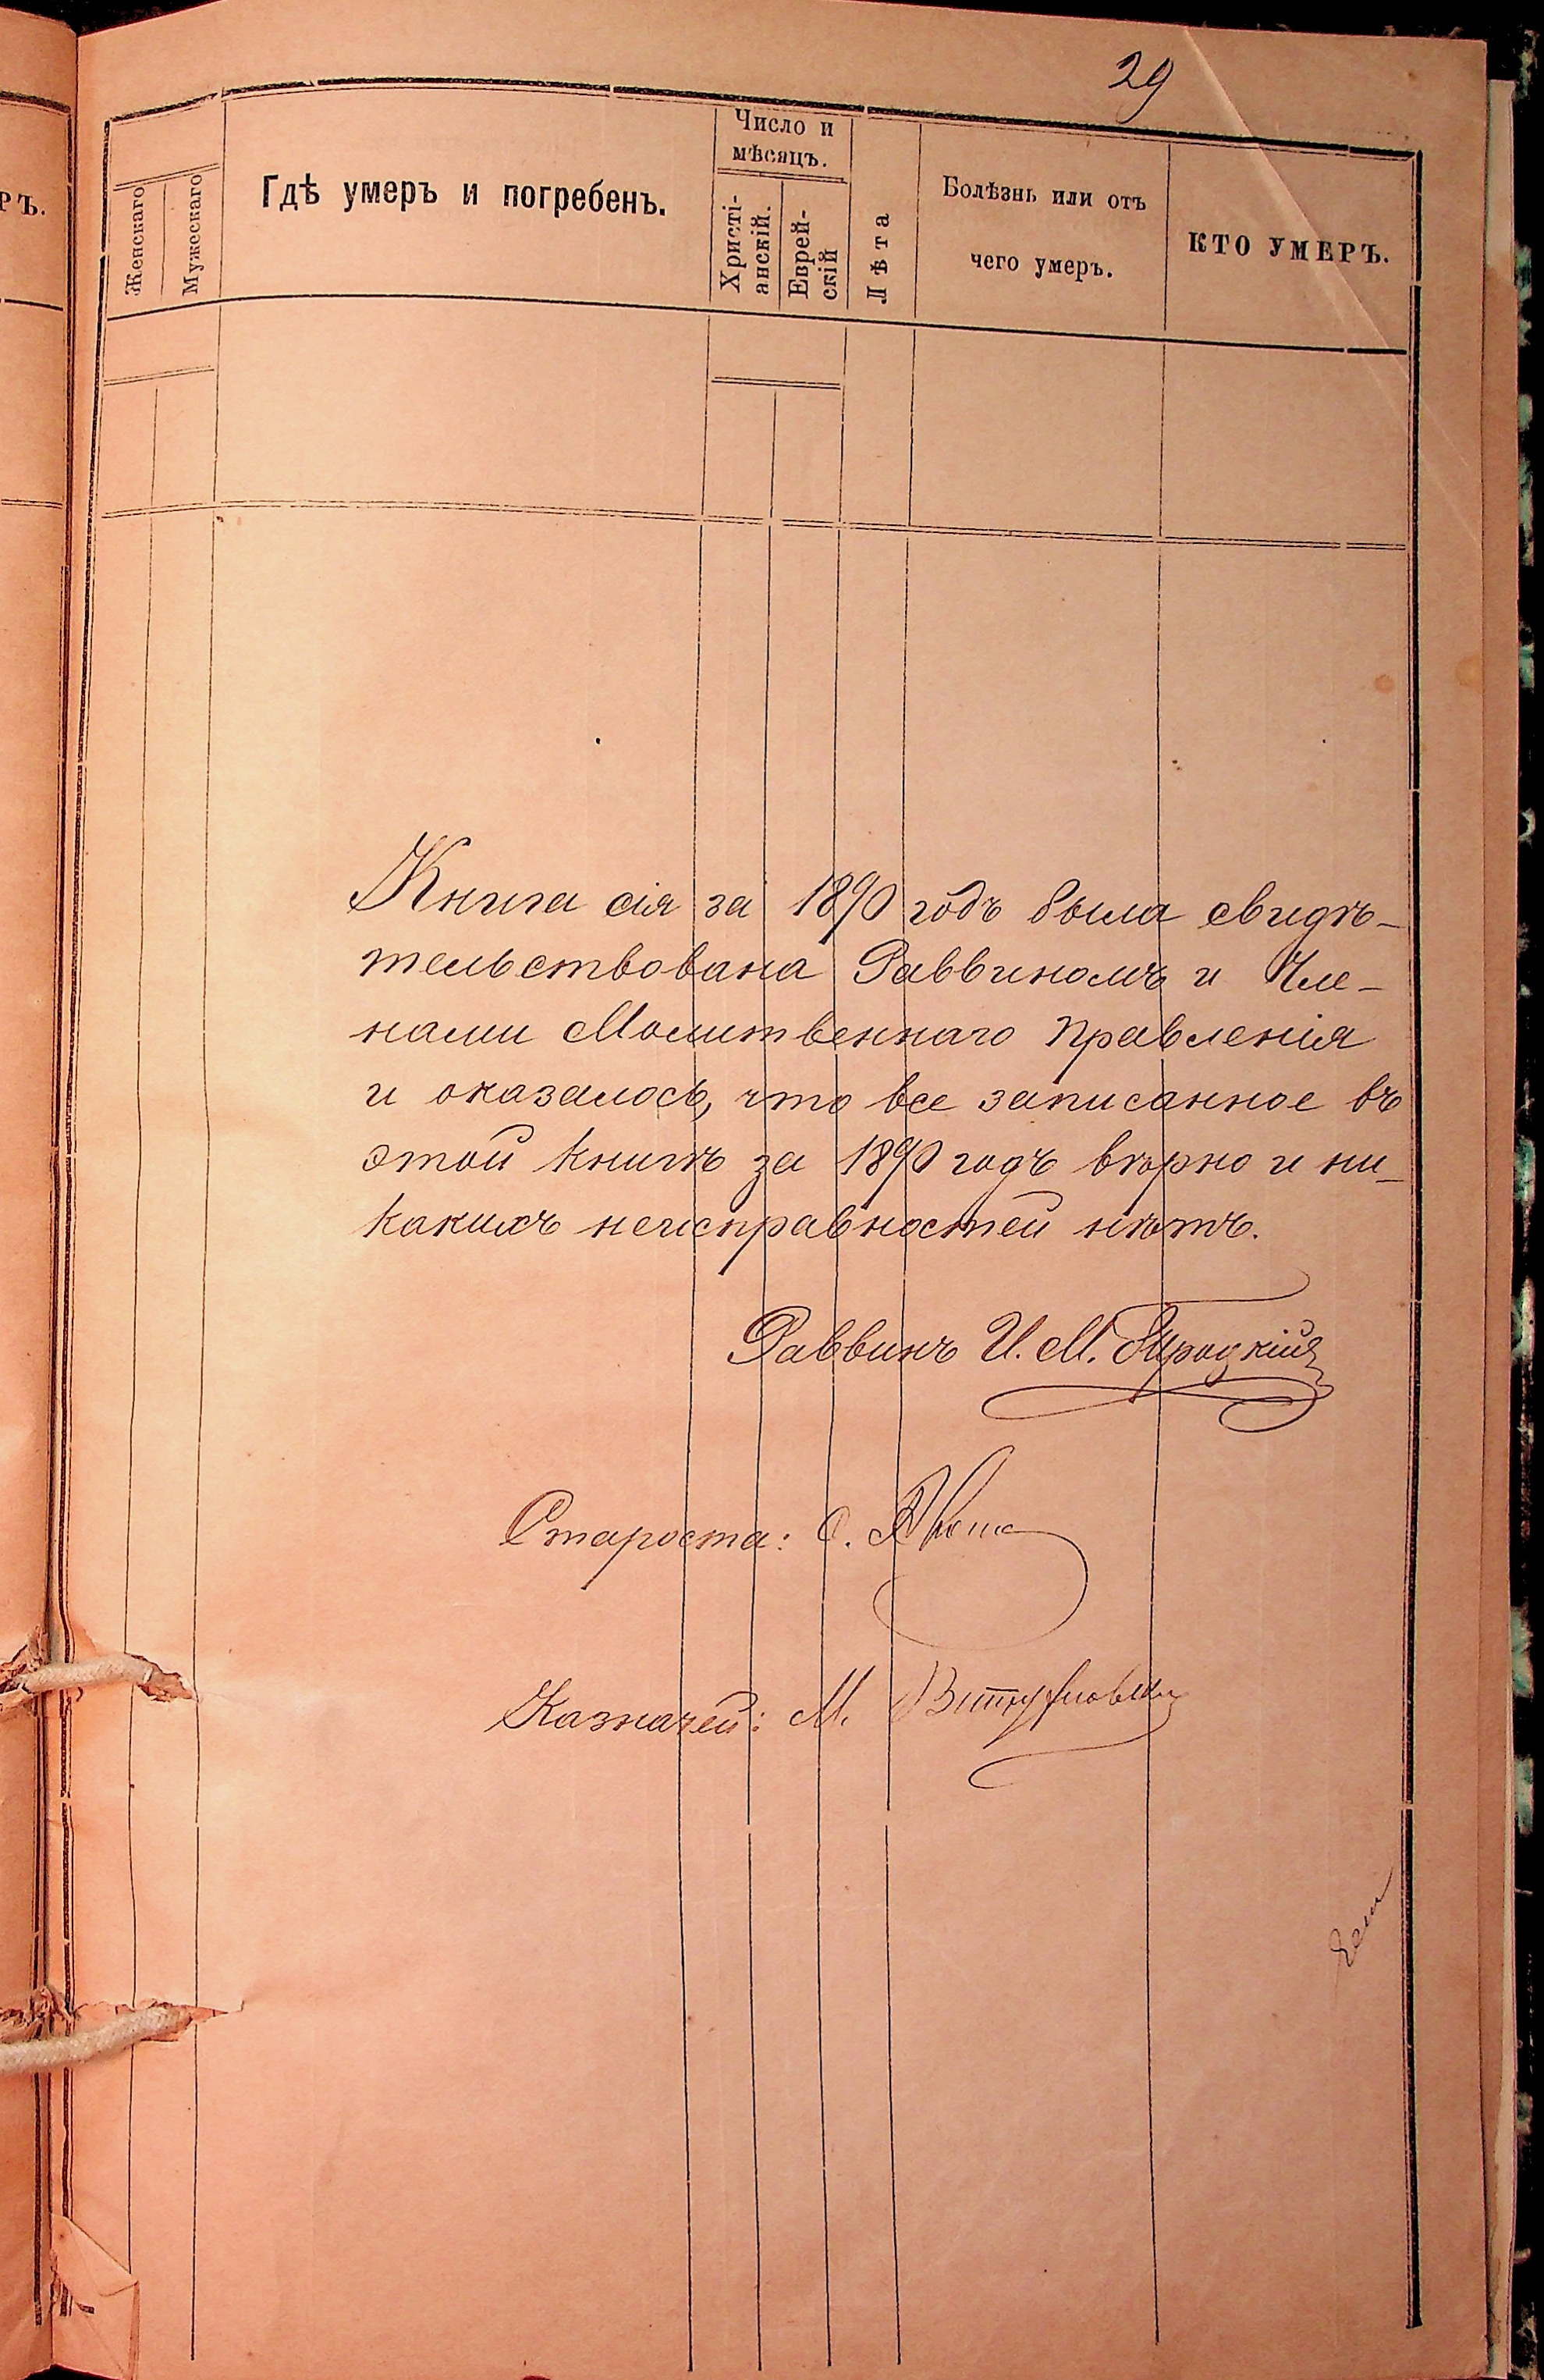 29
Женскаго
Мужескаго
Гдѣ умеръ и погребенъ.
Число и
мѣсяцъ.
Христі-
анскій.
Еврей-
скій
Лѣта
Болѣзнь или отъ
чего умеръ.
КТО УМЕРЪ.
РЪ.
Книга сія за 1890 годъ была свидѣ-
тельствована Раввиномъ и Чле-
нами Молитвеннаго Правленія
и оказалось, что все записанное въ
этой книгѣ за 1890 годъ вѣрно и ни-
какихъ неисправностей нѣтъ.
Раввинъ И. М.
Староста: О.
Казначей: М.